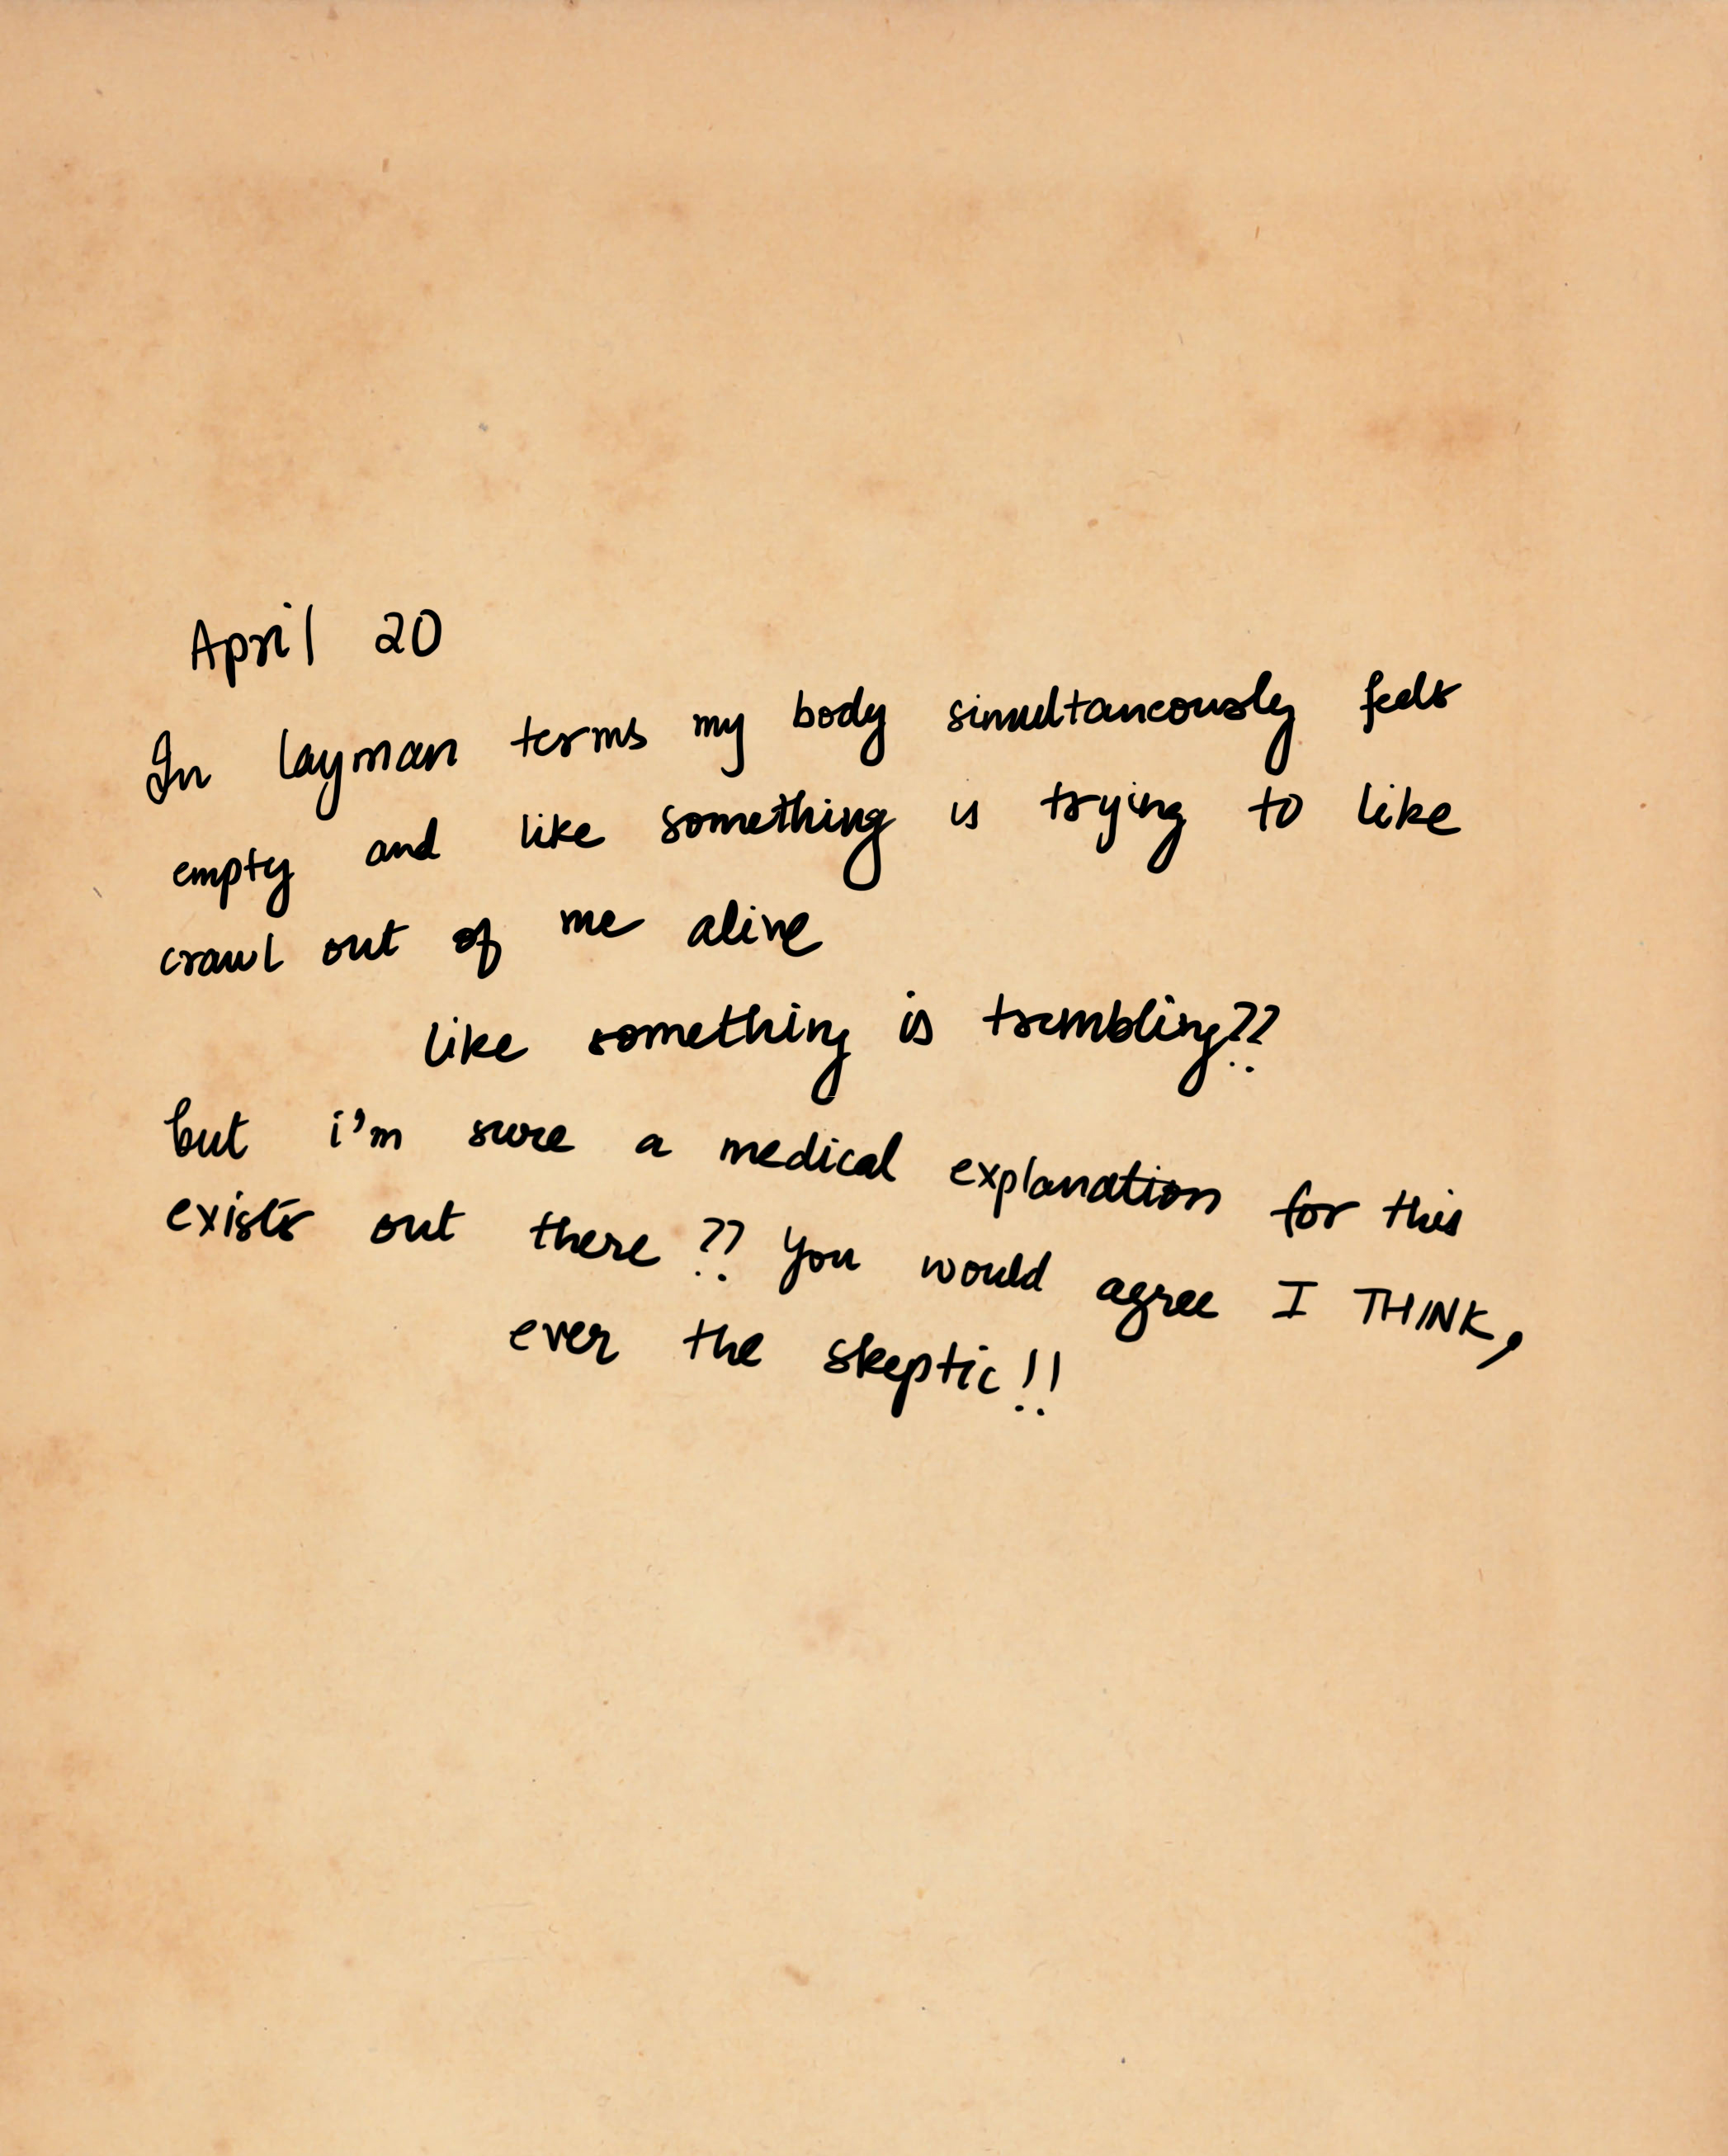 April 20
In layman terms my body simultaneously feels
empty and like something is trying to like
crawl out of me alive
like something is trembling??
but i'm sure a medical explanation for this
exists out there?? You would agree I THINK,
ever the skeptic!!